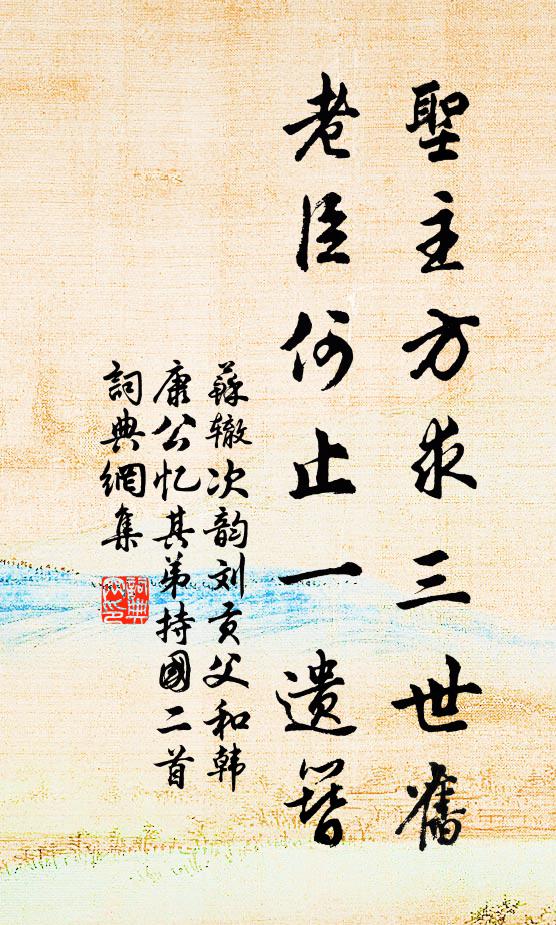 聖主方求三世舊
老臣何止一遺簪
蘇辙次韵刘贡父和韩
康公忆其弟持國二首
詞典網集